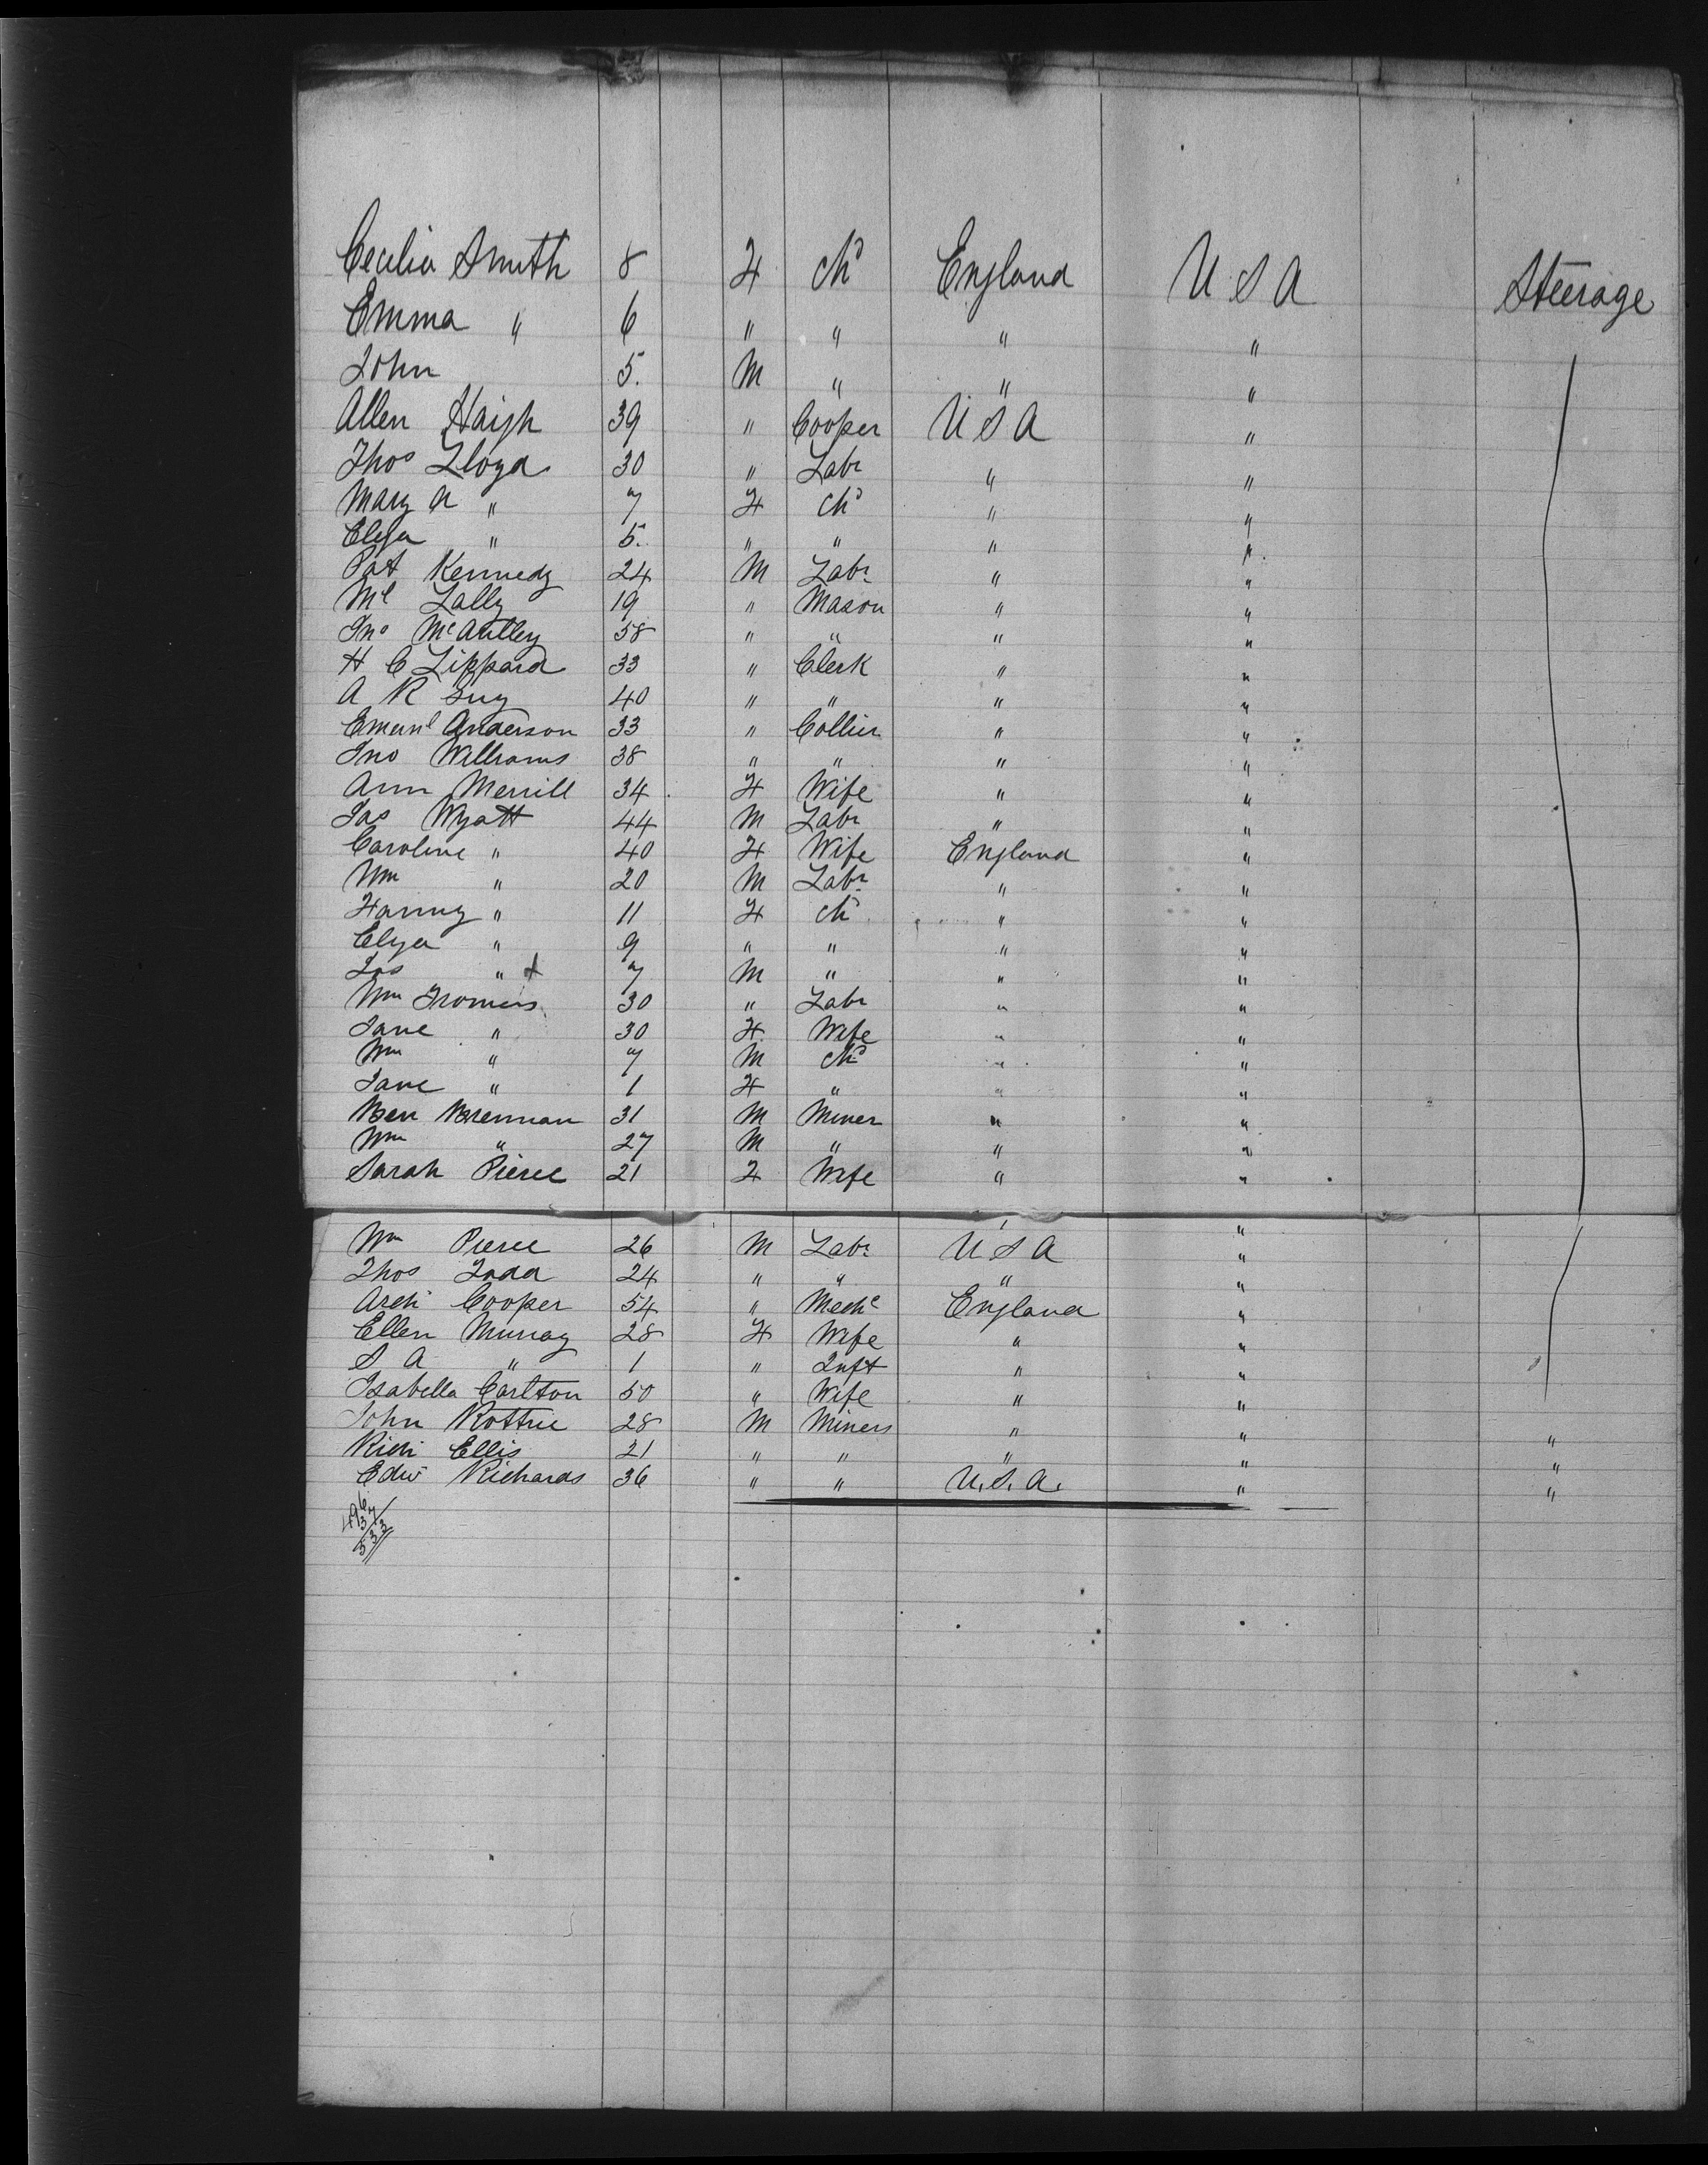 Cecilia Smith 8 F Chd England U S A Steerage
Emma " 6 " " " "
John 5. M " " "
Allen Haigh 39 " Cooper U S A "
Thos Lloyd 30 " Labr " "
Mary A " 7 F Chd " "
Eliza " 5. " " " "
Pat Kennedy 24 M Labr " "
Ml Lally 19 " Mason " "
Jno McAulley 58 " " " "
H C Lippard 33 " Clerk " "
A R 40 " " " "
Emanl Anderson 33 " Collier " "
Jno Williams 38 " " " "
Ann Merrill 34 F Wife " "
Jas Wyatt 44 M Labr " "
Caroline " 40 F Wife England "
Wm " 20 M Labr " "
Fanny " 11 F Chd " "
Eliza " 9 " " " "
Jas " + 7 M " " "
Wm 30 " Labr " "
Jane " 30 F Wife " "
Wm " 7 M Chd " "
Jane " 1 F " " "
Ben Brennan 31 M Miner " "
Wm " 27 M " " "
Sarah Pierce 21 F Wife " "
"
Wm Pierce 26 M Labr U S A "
Thos Todd 24 " " " "
Archd Cooper 54 " Mechc England "
Ellen Murray 28 F Wife " "
S A " 1 " Inft " "
Isabella Carlton 50 " Wife " "
John Rottrie 28 M Miners " "
Richd Ellis 21 " " " " "
Edwd Richards 36 " " U.S.A. " "
"
496
37
533